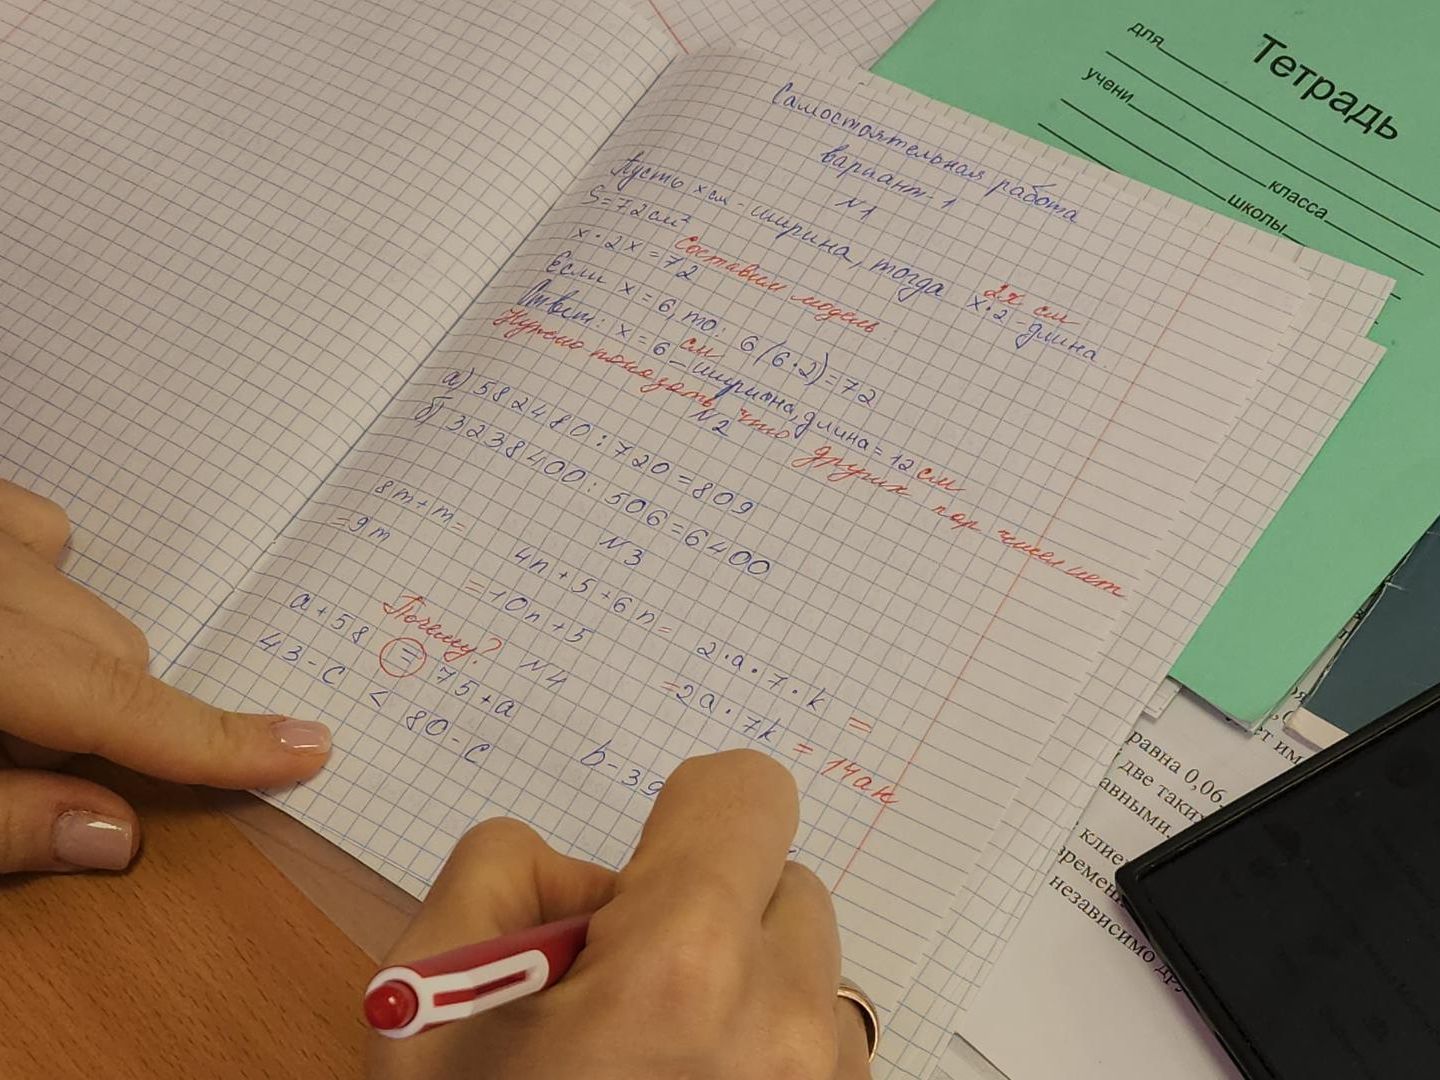 Самостоятельная работа
вариант-1
N1
Пусть x см - ширина, тогда x·2 - длина.
2x см
S=72 см²
Составим модель.
x·2x=72
Если x=6, то: 6(6·2)=72
Ответ: x=6 см - ширина, длина=12 см
Нужно показать что других пар чисел нет
N2
а) 582480:720=809
б) 3238400:506=6400
N3
8m+m=
=9m
4n+5+6n=
=10n+5
2·a·7·k=
=2a·7k=14ak
Почему?
N4
a+58 = 75+a
43-c < 80-c
b-39
Тетрадь
для
учени
класса
школы
равна 0,06.
две таких
авными.
клие
времен
независимо дру